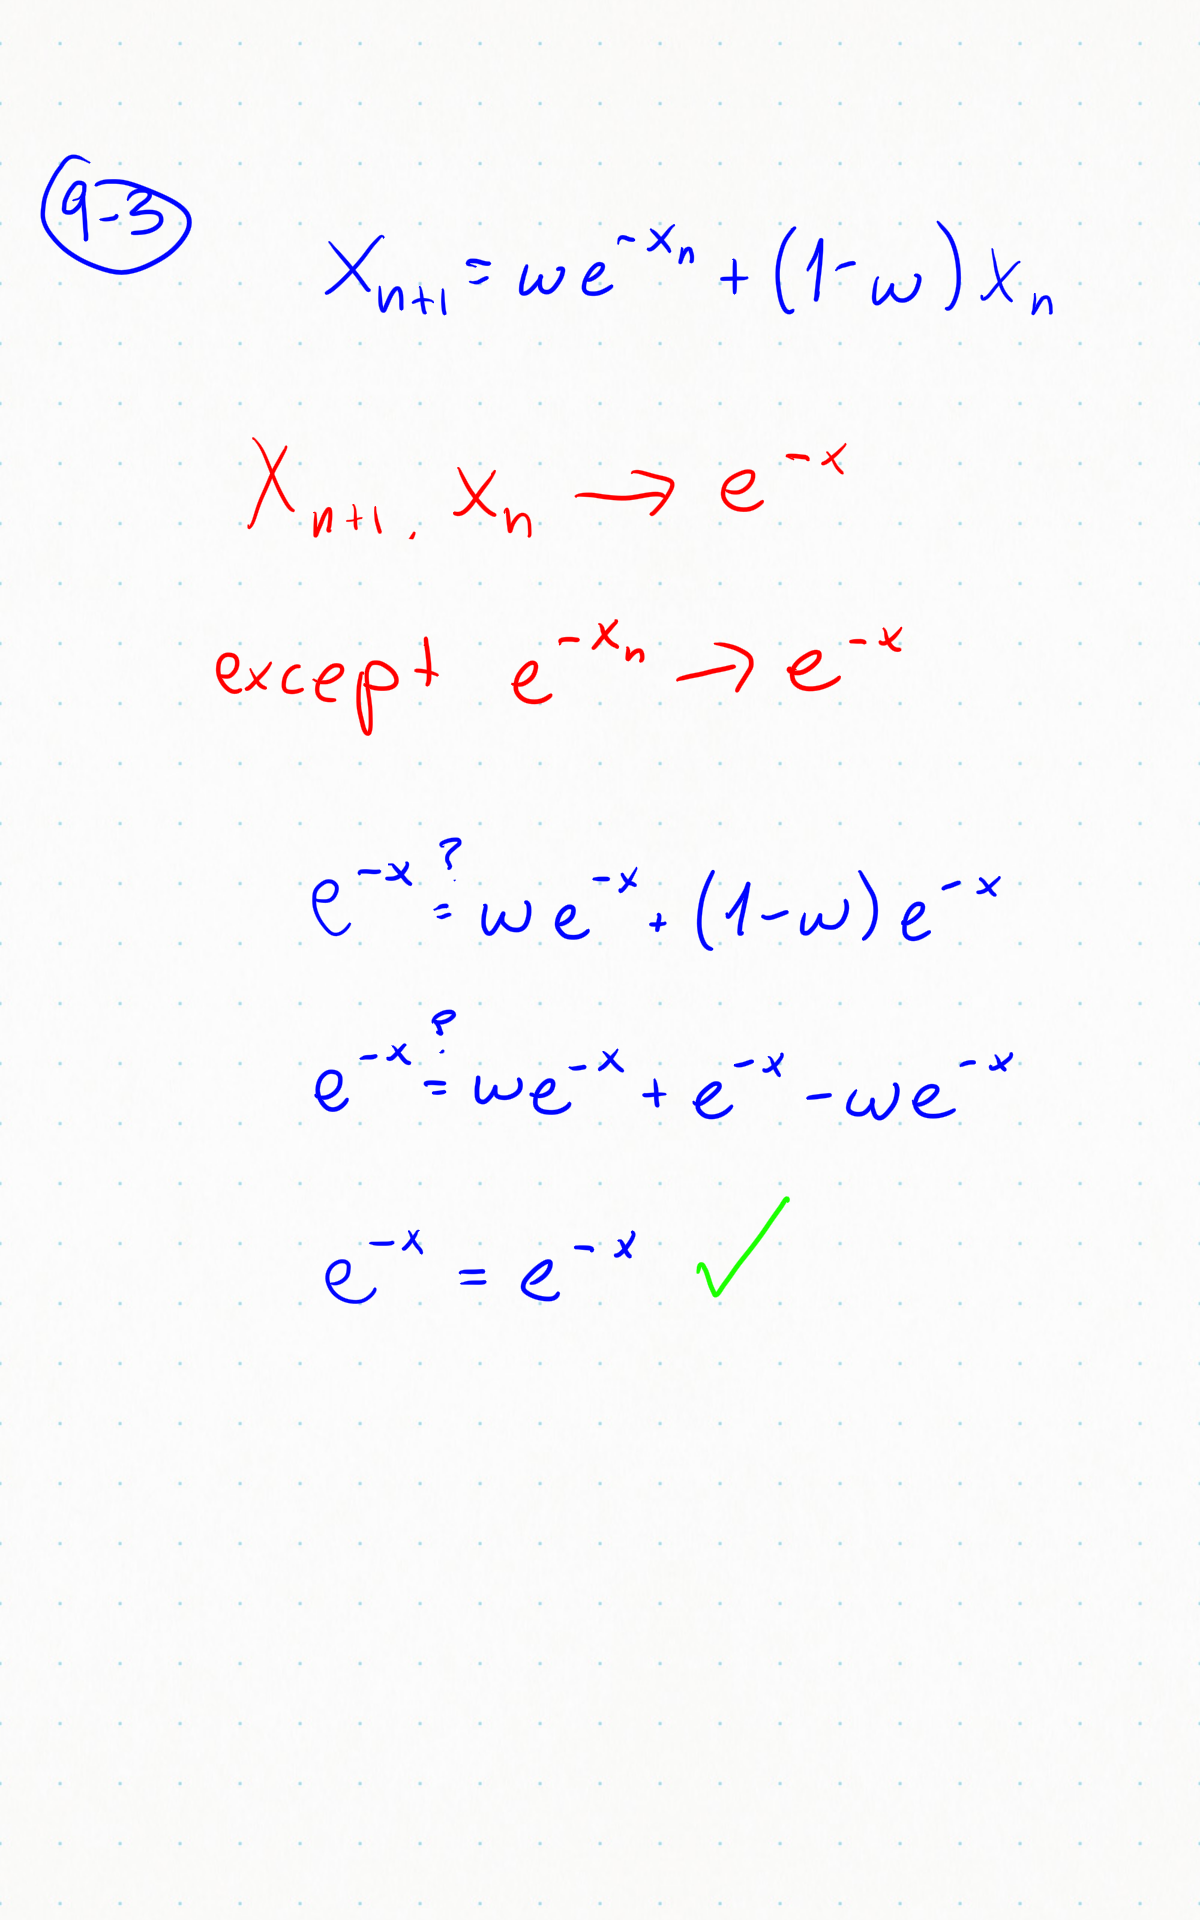 9-3
Xₙ₊₁ = ωe^(-xₙ) + (1-ω)xₙ
Xₙ₊₁, xₙ → e^(-x)
except e^(-xₙ) → e^(-x)
e^(-x) ?= ωe^(-x) + (1-ω)e^(-x)
e^(-x) ?= ωe^(-x) + e^(-x) - ωe^(-x)
e^(-x) = e^(-x) ✓